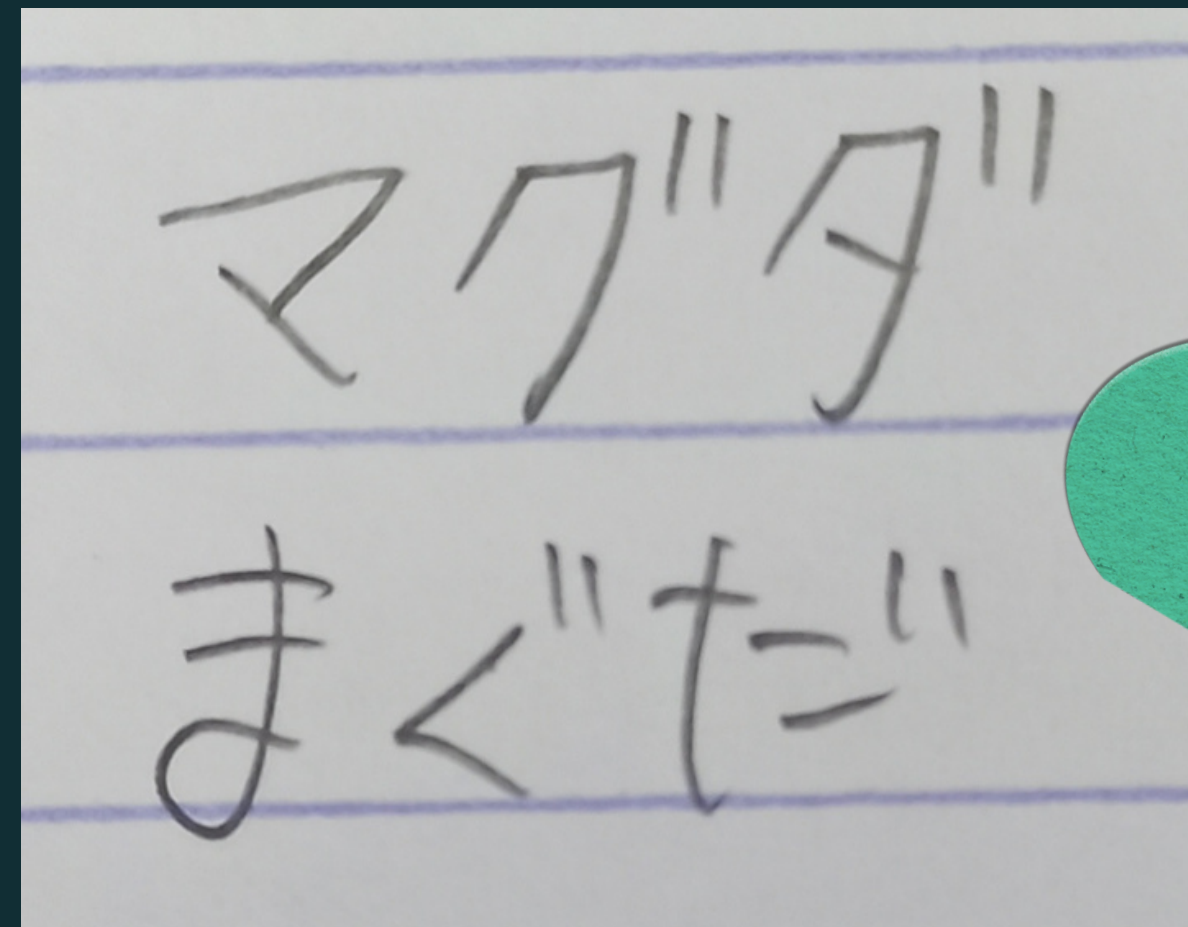 マグダ
まぐだ